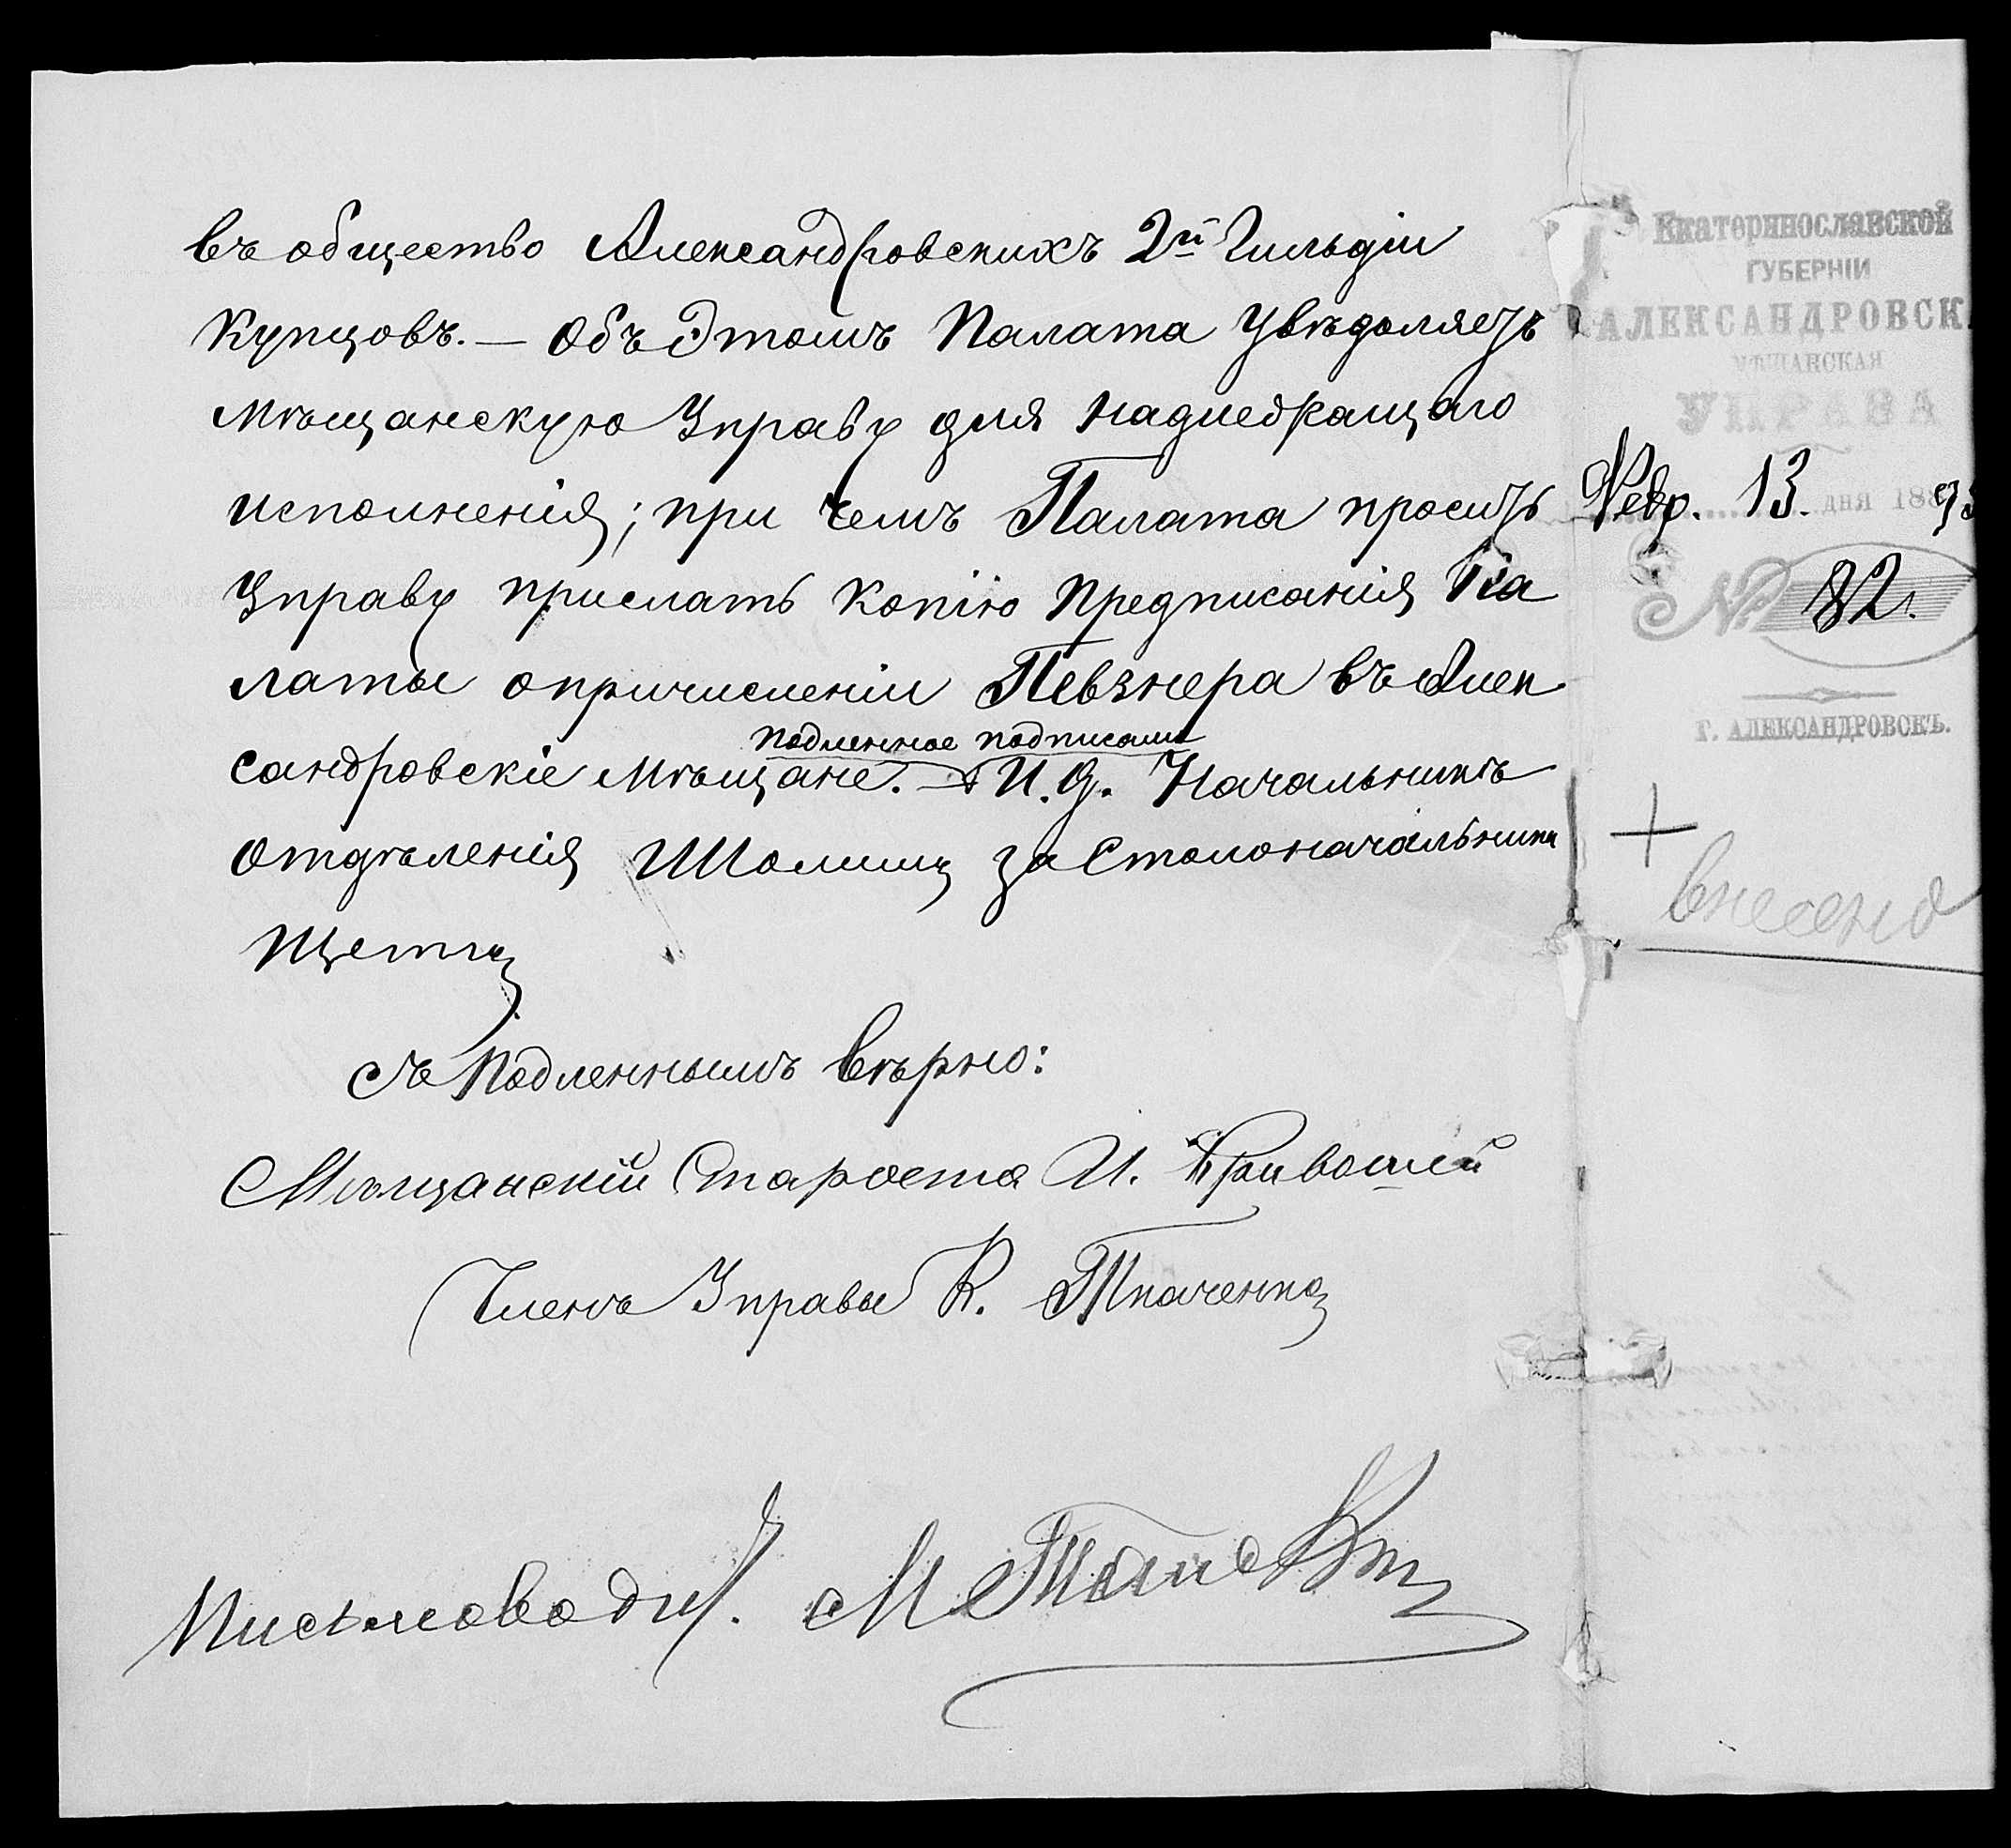 въ общество Александровскихъ 2й Гильдіи
Купцовъ. — Объ Этомъ Палата Увѣдомляетъ
Мѣщанскую Управу для надлежащаго
исполненія; при чемъ Палата проситъ
Управу прислать Копію Предписанія Па
латы о причисленіи Певзнера въ Алек
подленное подписали
сандровскіе Мѣщане. — И. д. Начальникъ
Отдѣленія За Столоначальника
Съ Подленнымъ Вѣрно:
Мѣщанскій Староста И. Кривошей
Членъ Управы К. Ткаченко
Письмоводит. М
Екатеринославской
ГУБЕРНІИ
АЛЕКСАНДРОВСК
МѢЩАНСКАЯ
УПРАВА
Февр. 13. дня 188 93
№ 82.
Г. АЛЕКСАНДРОВСКЪ.
+
внесено